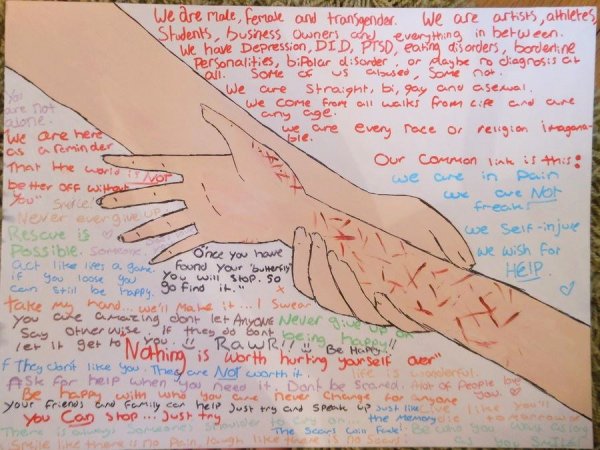 We are male, female and transgender. We are artists, athletes,
Students, business owners and everything in between.
We have Depression, DID, PTSD, eating disorders, borderline
Personalities, bipolar disorder, or maybe no diagnosis at
all. Some of us abused, Some not.
We are Straight, bi, gay and asexual.
We come from all walks from life and are
any age.
We are every race or religion imagana-
ble.
Our common link is this:
We are in Pain
We are NOT
freaks!
We Self-injure
We wish for
HELP
You
are not
alone.
We are here
as a reminder
That the world is NOT
better off without
You"
Never ever give up
Rescue is
Possible.
act like lifes a game.
if you loose you
can still be happy.
Once you have
found your 'butterfly'
you will stop. So
go find it.."
Take my hand... we'll make it... I swear
you are amazing dont let ANYONE
Say otherwise. if they do dont
let it get to you.
RAWR!!
Never give up on
being happy!!
Be Happy!!
Nothing is worth hurting yourself over"
If They don't like you. They are NOT worth it!
life is wonderful.
Ask for help when you need it. Dont be Scared.
A lot of People love
you.
Be happy with who you are never change for anyone
Your friends and family can help Just try and Speak up
Just like
You Can Stop... Just try
the Memory
There is always Someones Shoulder to Cry on
The Scars Can fade!
Smile like there is no Pain, laugh like there is no Scars!
as you Smile!